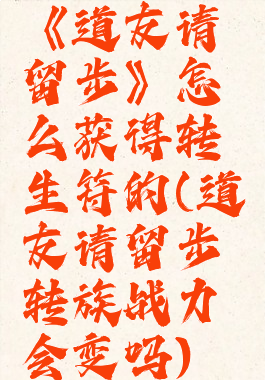 《道友请
留步》怎
么获得转
生符的(道
友请留步
转族战力
会变吗)